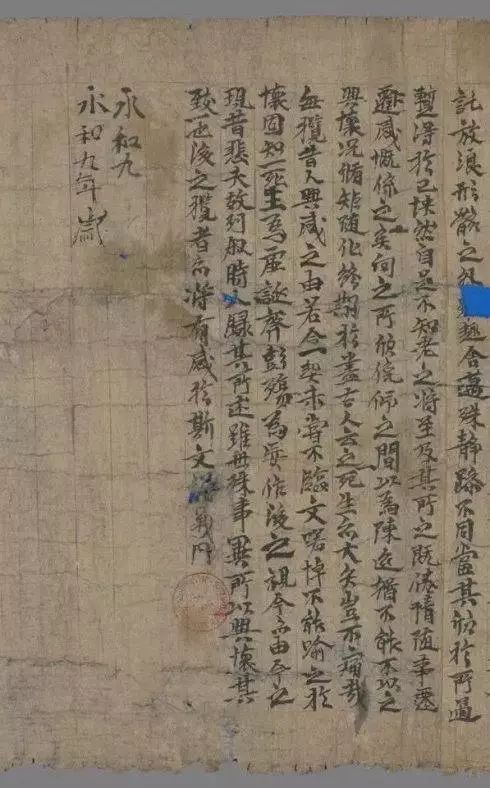 託放浪形骸之外趣舍萬殊静躁不同當其欣於所遇
暫得於己怏然自足不知老之將至及其所之既倦情隨事遷
遷感慨係之矣向之所欣俛仰之間以爲陳迹猶不能不以之
興懷況脩短隨化終期於盡古人云之死生亦大矣豈不痛哉
每攬昔人興感之由若合一契未嘗不臨文嗟悼不能喻之於
懷固知一死生爲虛誕齊彭殤爲妄作後之視今亦由今之
視昔悲夫故列叙時人録其所述雖世殊事異所以興懷其
致一也後之攬者亦將有感於斯文
永和九
永和九年歲